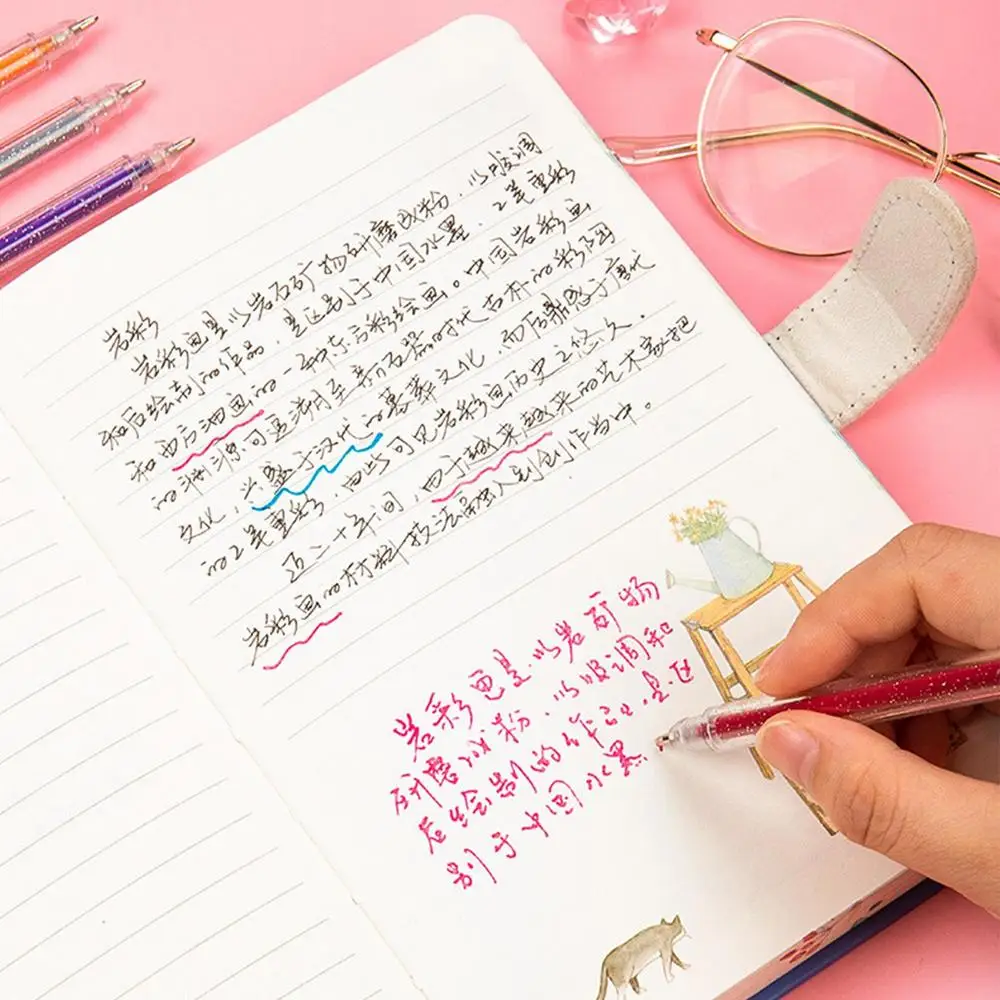 岩彩
岩彩画是以岩石矿物研磨成粉，以胶调
和后绘制的作品，是区别于中国水墨、工笔重彩
和西方油画的一种东方彩绘画。中国岩彩画
的渊源可追溯至新石器时代古朴的彩陶
文化，兴盛于汉代的墓葬文化，而后鼎盛于唐代
的工笔重彩，由此可见岩彩画历史之悠久。
近二十年间，由于越来越来的艺术家把
岩彩画的材料技法融入到创作当中。
岩彩画是以岩矿物
研磨成粉，以胶调和
后绘制的作品，是区
别于中国水墨